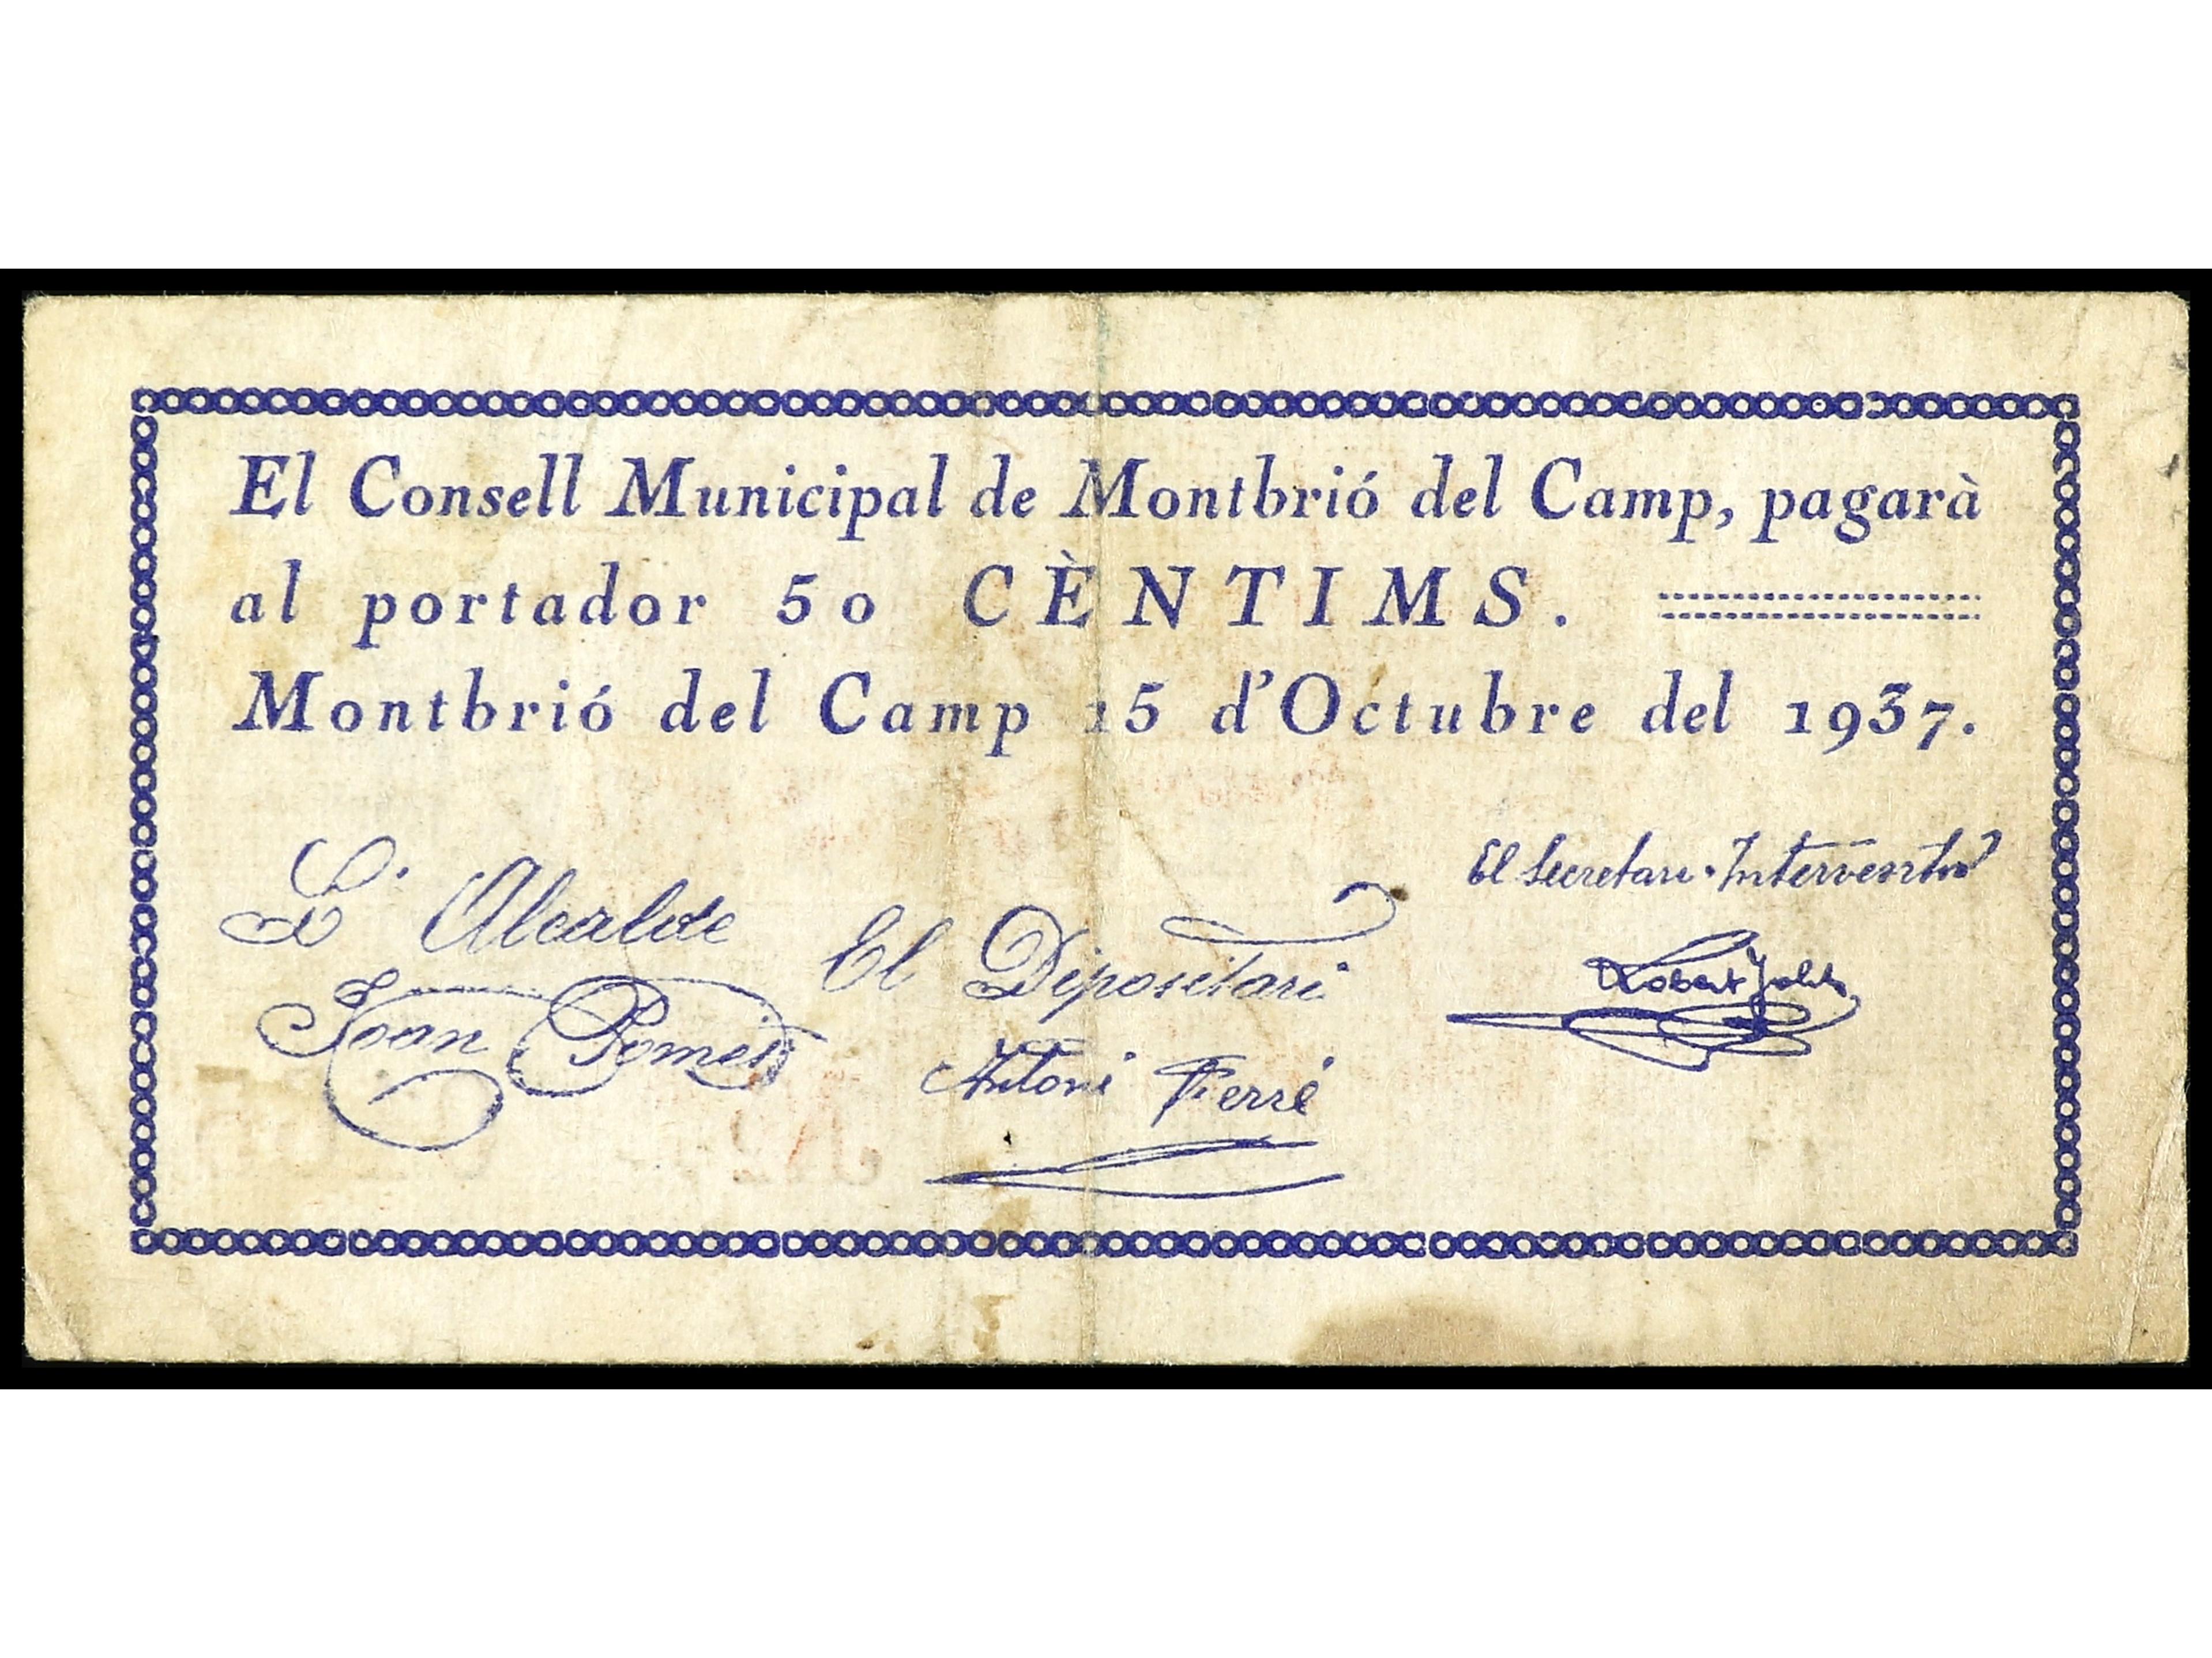 El Consell Municipal de Montbrió del Camp, pagarà
al portador 50 CÈNTIMS.
Montbrió del Camp 15 d'Octubre del 1937.
L'Alcalde
Joan Pomés
El Dipositari
Antoni Ferré
El Secretari-Interventor
Robert